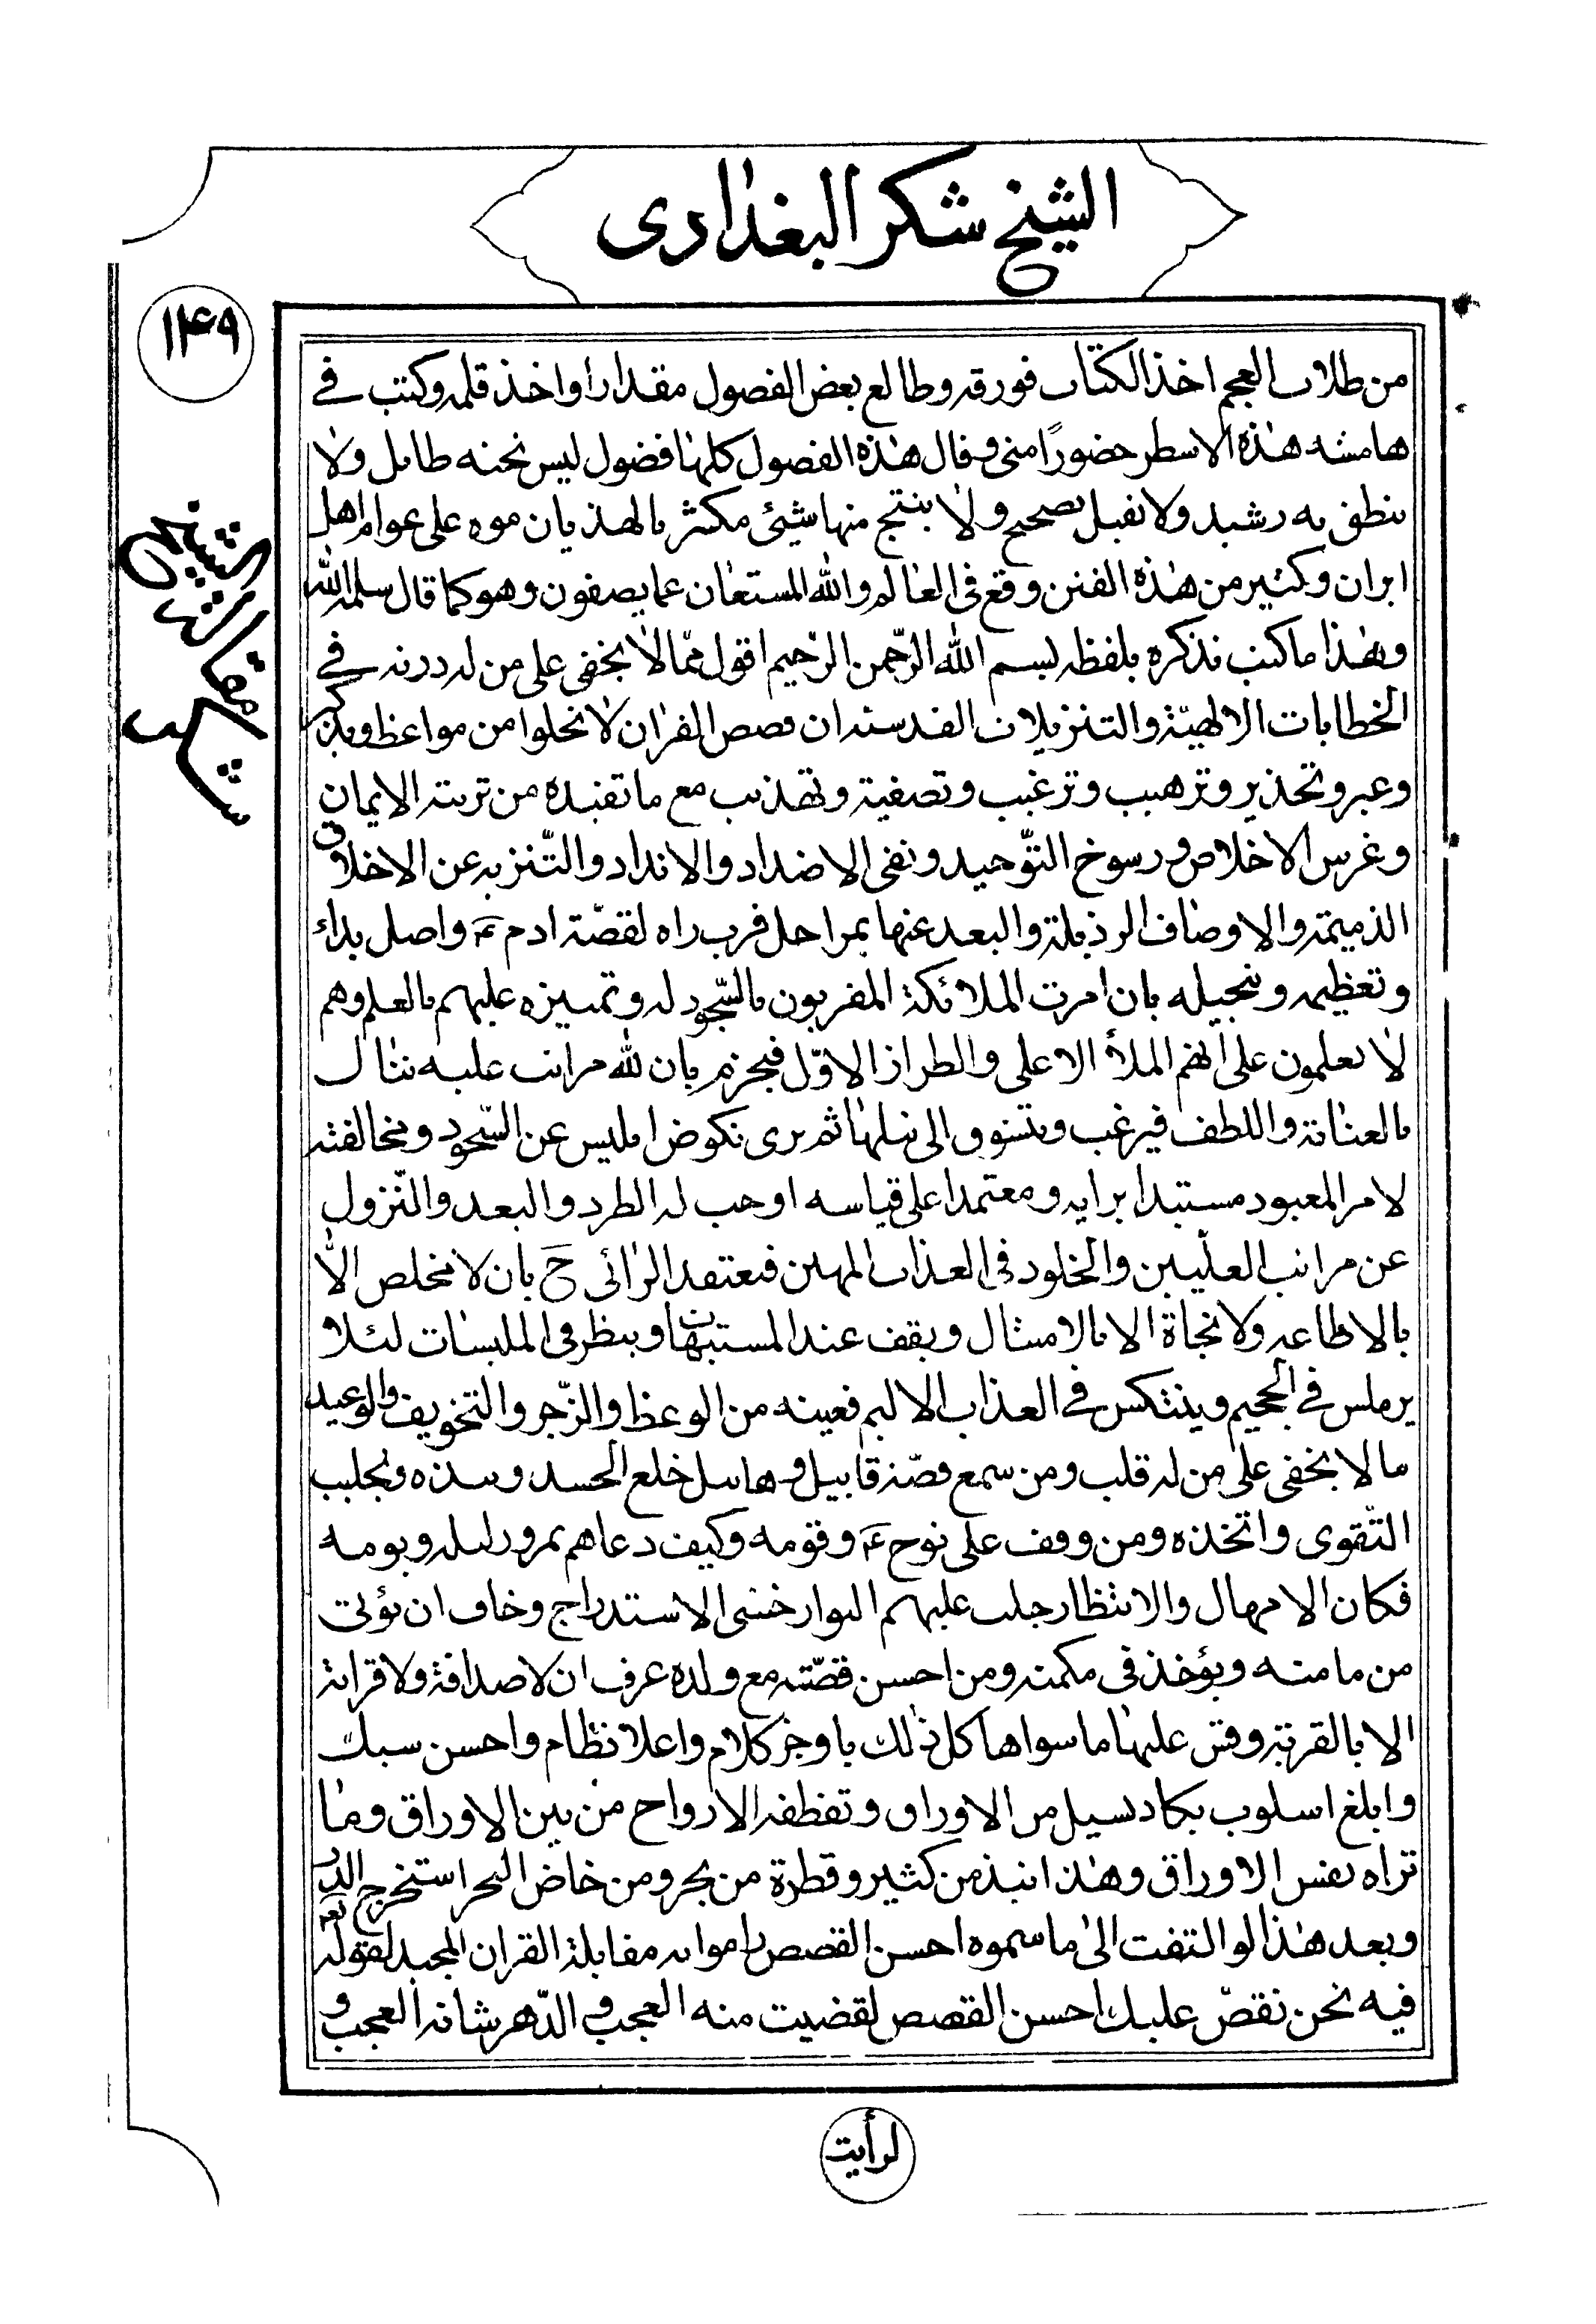 الشيخ شكر البغدادى
١٤٩
مقالة الشيخ شكر
من طلاب العجم اخذ الكتاب فورقه وطالع بعض الفصول مقدارا واخذ قلمه وكتب فى
هامشه هذه الاسطر حضورًا منى وقال هذه الفصول كلها فضول ليس تحته طايل ولا
ينطق به رشيد ولا تقبل بصحيح ولا ينتج منها شيئى مكثر بالهذيان موه على عوام اهل
ايران وكثير من هذه الفتن وقع فى العالم والله المستعان عما يصفون وهو كما قال سلمه الله
وهذا ما كتب نذكره بلفظه بسم الله الرّحمن الرّحيم اقول ممّا لا يخفى على من له دربه فى
الخطابات الالهيّة والتنزيلات القدسيه ان قصص القران لا تخلوا من مواعظ وتذكير
وعبر وتحذير وترهيب وترغيب وتصفية وتهذيب مع ما تفيده من تربية الايمان
وغرس الاخلاص ورسوخ التوّحيد ونفى الاضداد والانداد والتّنزيه عن الاخلاق
الذميمة والاوصاف الرذيلة والبعد عنها بمراحل فرب راه لقصّة ادم ع واصل بدائه
وتعظيمه وتبجيله بان امرت الملائكة المقربون بالسّجود له وتمييزه عليهم بالعلم وهم
لا يعلمون على انهم الملأ الاعلى والطراز الاوّل فيجزم بان لله مراتب علية تنال
بالعناية واللطف فيرغب ويتشوق الى نيلها ثم يرى نكوص ابليس عن السّجود ومخالفته
لامر المعبود مستبدا برايه ومعتمدا على قياسه اوجب له الطرد والبعد والنّزول
عن مراتب العلّيين والخلود فى العذاب المهين فيعتقد الرائى ح بان لا مخلص الّا
بالاطاعه ولا نجاة الا بالامتثال ويقف عند المشتبهات وينظر فى الملبسات لئلا
يرملس فى الجحيم وينتكس فى العذاب الاليم فعينه من الوعظ والزّجر والتخويف والوعيد
ما لا يخفى على من له قلب ومن سمع قصّة قابيل وهابيل خلع الحسد ونبذه وتجلبب
التّقوى واتخذه ومن وقف على نوح ع وقومه وكيف دعاهم بمرور ليله ويومه
فكان الامهال والانتظار جلب عليهم البوار خشى الاستدراج وخاف ان يؤتى
من مامنه ويؤخذ فى مكمنه ومن احسن قصّته مع ولده عرف ان لا صداقة ولا قرابة
الا بالقربة وقس عليها ما سواها كل ذلك باوجز كلام واعلا نظام واحسن سبك
وابلغ اسلوب يكاد يسيل من الاوراق وتقطفه الارواح من بين الاوراق وما
تراه نفس الاوراق وهذا نبذ من كثير وقطرة من بحر ومن خاض البحر استخرج الدر
وبعد هذا لو التفت الى ما سموه احسن القصص راموا به مقابلة القران المجيد لقوله تعه
فيه نحن نقصّ عليك احسن القصص لقضيت منه العجب وفى الدّهر شانه العجب و
لرأيت